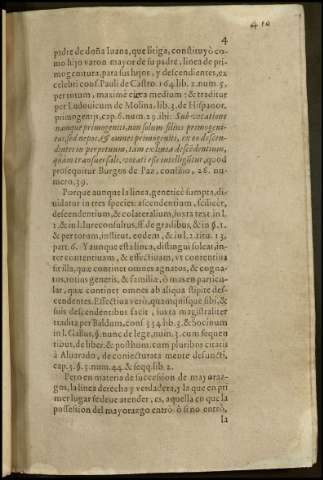 410
4
padre de doña Iuana, que litiga, constituyò co-
mo hijo varon mayor de su padre, linea de pri-
mogenitura, para sus hijos, y descendientes, ex
celebri cons. Pauli de Castro. 164. lib. 2. num. 5.
per totum, maximè circa medium: & traditur
per Ludouicum de Molina. lib. 3. de Hispanor.
primogenijs, cap. 6. num. 29. ibi: Sub vocatione
nanque primogeniti, non solum filius primogeni-
tus, sed nepos, & omnes primogeniti, ex eo descen-
dentes in perpetuum, tam ex linea descēdentium,
quàm transuersali, vocati esse intelligūtur, quod
prosequitur Burgos de Paz, consilio, 26. nu-
mero, 39.
Porque aunque la linea, genericè sumpta, di-
uidatur in tres species: ascendentium, scilicèt,
descendentium, & colateralium, iuxta text. in l.
1. & in l. Iureconsultus, ff. de gradibus, & in §. 1.
& per totum, institut. eodem, & in l. 2. titu. 13.
part. 6. Y aunque esta linea, distingui soleat, in-
ter contentiuam, & effectiuam, vt contentiua
sit illa, quæ continet omnes agnatos, & cogna-
tos, totius generis, & familiæ, ò mas en particu-
lar, quæ continet omnes ab aliqua stipite des-
cendentes. Effectiua verò, quam quisque sibi, &
suis descendentibus facit, iuxta magistraliter
tradita per Baldum, cons 334. lib. 3. & hoc inum
in l. Gallus, §. nunc de lege, num. 3. cum sequen
tibus, de liber. & posthum. cum pluribus citatis
à Aluarado, de coniecturata mente defuncti,
cap. 3. §. 3. num. 44. & seqq. lib. 2.
Pero en materia de succession de mayoraz-
go, la linea derecha y verdadera, y la que en pri
mer lugar se deue atender, es, aquella en que la
possession del mayorazgo entrò: ò si no entrò,
la